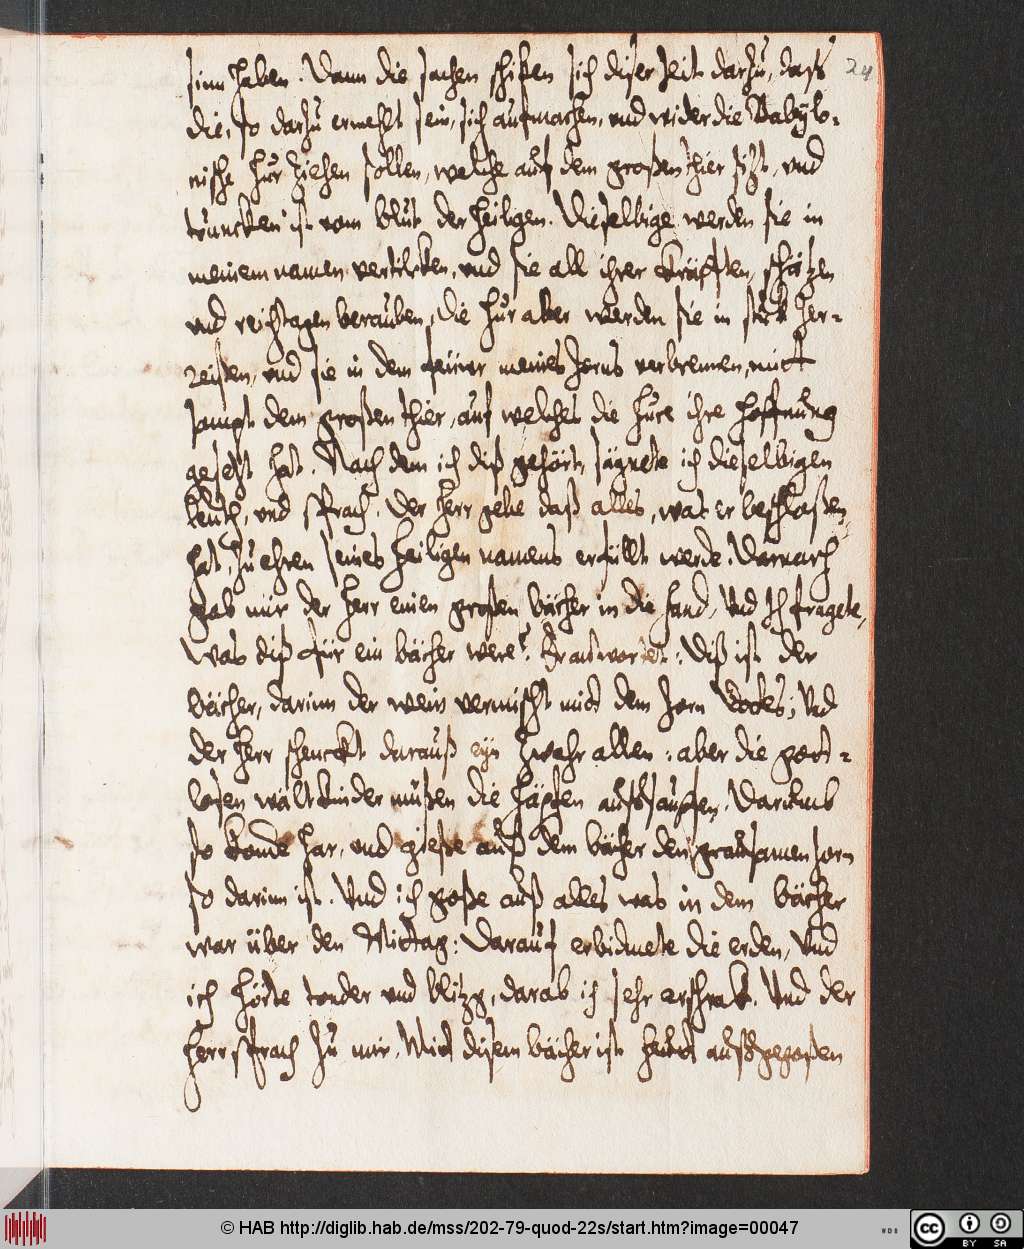 24
sinn haben. Dann die sachen schiken sich diser zeit darzu, daß
die, so darzu erwehlt sein, sich aufmachen, und wider die Babylo-
nische hur ziehen sollen, welche auf dem großen thier sizt, und
truncken ist vom blut der heiligen. Dieselbige werden sie in
meinem namen vertilcken, und sie all ihrer kräfften, schätzen
und reichtagen berauben, die hur aber werden sie in stuck zer-
reißen, und sie in dem feüwer meines zorns verbrennen, mitt
sampt dem großen thier, auf welches die hure ihre hoffnung
gesetzt hat. Nach dem ich diß gehört, sägnete ich dieselbigen
leuth, und sprach, der herr gebe daß alles, was er beschloßen
hat, zu ehren seines heiligen namens erfüllt werde. Darnach
gab mir der herr einen großen bächer in die hand, Und Ich fragete,
Was diß für ein bächer were? Er antwortet: Diß ist der
bächer, darinn der wein vermischt mit dem zorn Gottes; Und
der herr schenckt darauß eyn zwahr allen: aber die gott-
losen wältkinder müßen die häpfen außsaupfen, Darumb
so komde har, und gieße auß dem bächer den grausamen zorn
so darinn ist. Und ich goße auß alles was in dem bächer
war über den Mittag: Darauf erbidmete die erden, Und
ich hörte tonder und blitzg, darab ich sehr erschrak. Und der
herr sprach zu mir, Mit disem bächer ist heütt außgegoßen
© HAB http://diglib.hab.de/mss/202-79-quod-22s/start.htm?image=00047
WDB
cc BY SA